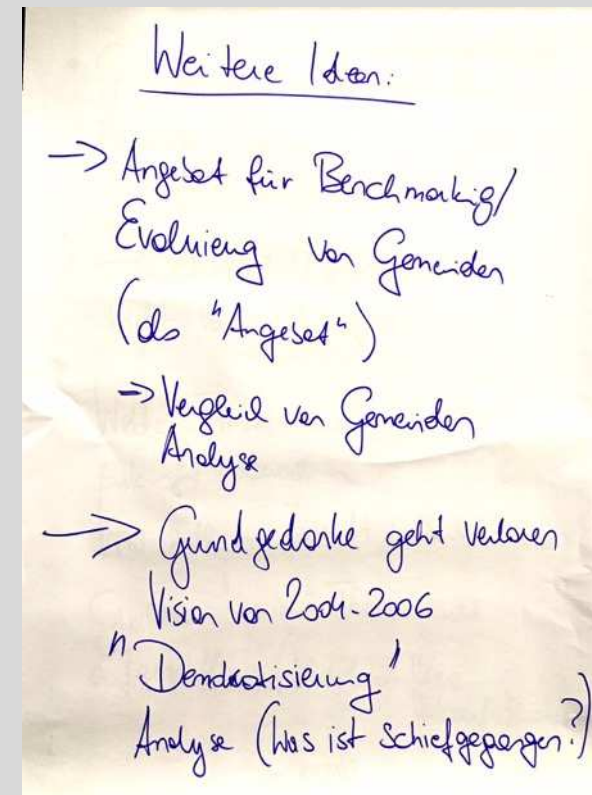 Weitere Ideen:
-> Angebot für Benchmarking/
Evaluierung von Gemeinden
(als "Angebot")
-> Vergleich von Gemeinden
Analyse
-> Grundgedanke geht verloren
Vision von 2004-2006
"Demokratisierung"
Analyse (Was ist schiefgegangen?)